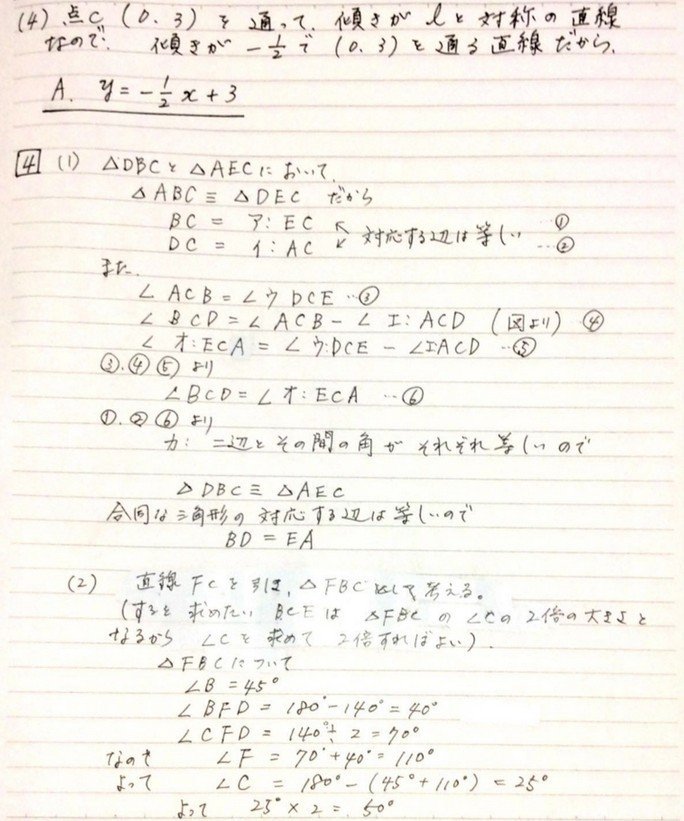 (4) 点C (0.3) を通って、傾きが l と対称の直線
なので. 傾きが -1/2 で (0.3) を通る直線だから.
A. y = -1/2 x + 3
4 (1) △DBCと△AECにおいて.
△ABC ≡ △DEC だから
BC = ア: EC ↖ 対応する辺は等しい ①
DC = イ: AC ↙ …②
また.
∠ ACB = ∠ウ DCE …③
∠ BCD = ∠ ACB - ∠ エ: ACD (図より) ④
∠ オ: ECA = ∠ウ:DCE - ∠エACD …⑤
③.④⑤より
∠BCD = ∠オ: ECA …⑥
①.②⑥より
カ: 二辺とその間の角がそれぞれ等しいので
△DBC ≡ △AEC
合同な三角形の対応する辺は等しいので
BD = EA
(2) 直線 FC を引き、△FBC として考える。
(すると求めたい BCE は △FBC の ∠Cの2倍の大きさと
なるから ∠Cを求めて 2倍すればよい).
△FBCについて
∠B = 45°
∠BFD = 180° - 140° = 40°
∠CFD = 140° ÷ 2 = 70°
なので ∠F = 70° + 40° = 110°
よって ∠C = 180° - (45° + 110°) = 25°
よって 25° × 2 = 50°